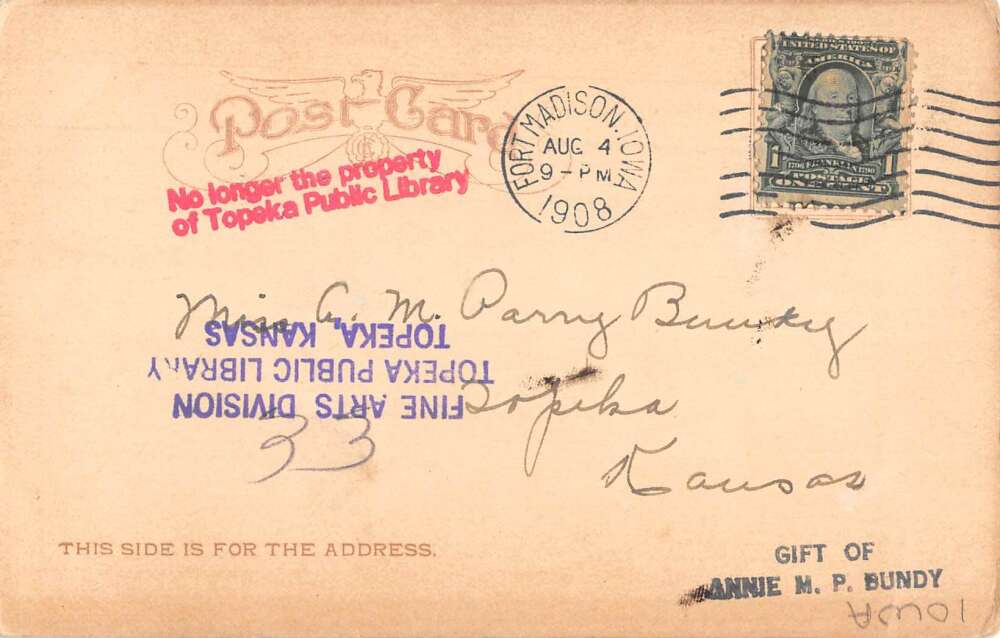 Post Card
No longer the property
of Topeka Public Library
FORT MADISON, IOWA
AUG 4
9-PM
1908
SERIES 1902
UNITED STATES OF
AMERICA
1706 FRANKLIN 1790
1 POSTAGE 1
ONE CENT
Miss A. M. Parry Bundy
Topeka
Kansas
FINE ARTS DIVISION
TOPEKA PUBLIC LIBRARY
TOPEKA, KANSAS
33
THIS SIDE IS FOR THE ADDRESS.
GIFT OF
ANNIE M. P. BUNDY
IOWA